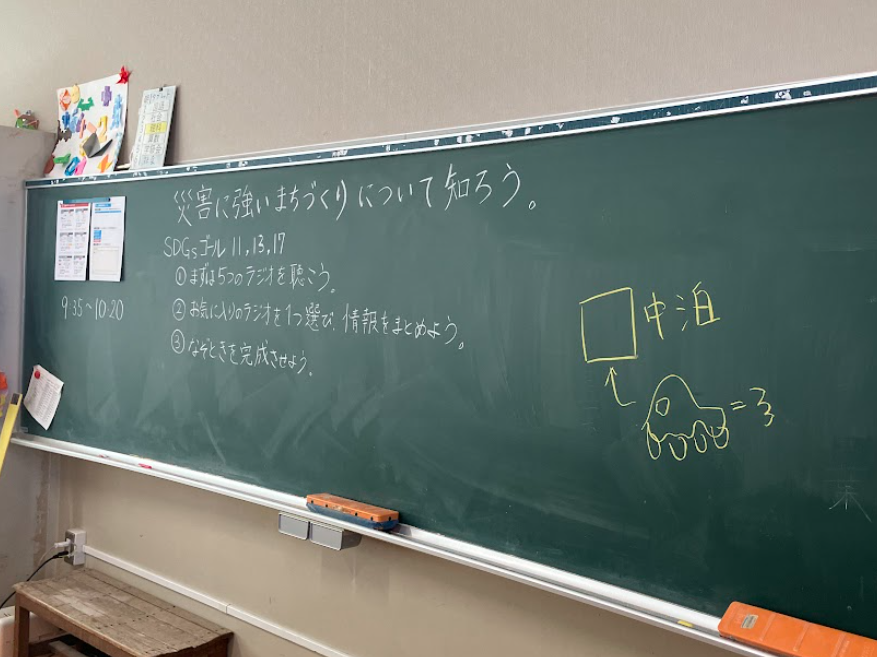 災害に強いまちづくりについて知ろう。
SDGsゴール 11,13,17
①まずは5つのラジオを聴こう。
②お気に入りのラジオを1つ選び、情報をまとめよう。
③なぞときを完成させよう。
9:35~10:20
中泊
=3